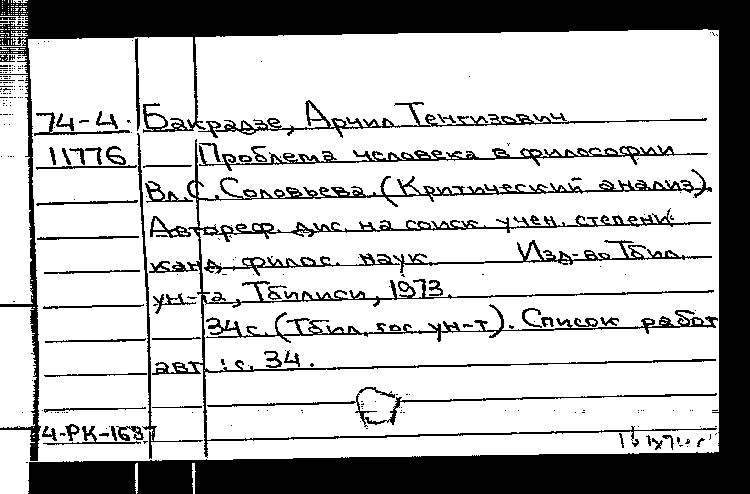 74-4. Бакрадзе, Арчил Тенгизович
11776 Проблема человека в философии
Вл. С. Соловьева. (Критический анализ).
Автореф. дис. на соиск. учен. степени
канд. филос. наук. Изд-во Тбил.
ун-та, Тбилиси, 1973.
34 с. (Тбил. гос. ун-т). Список работ
авт.: с. 34.
4-РК-1687